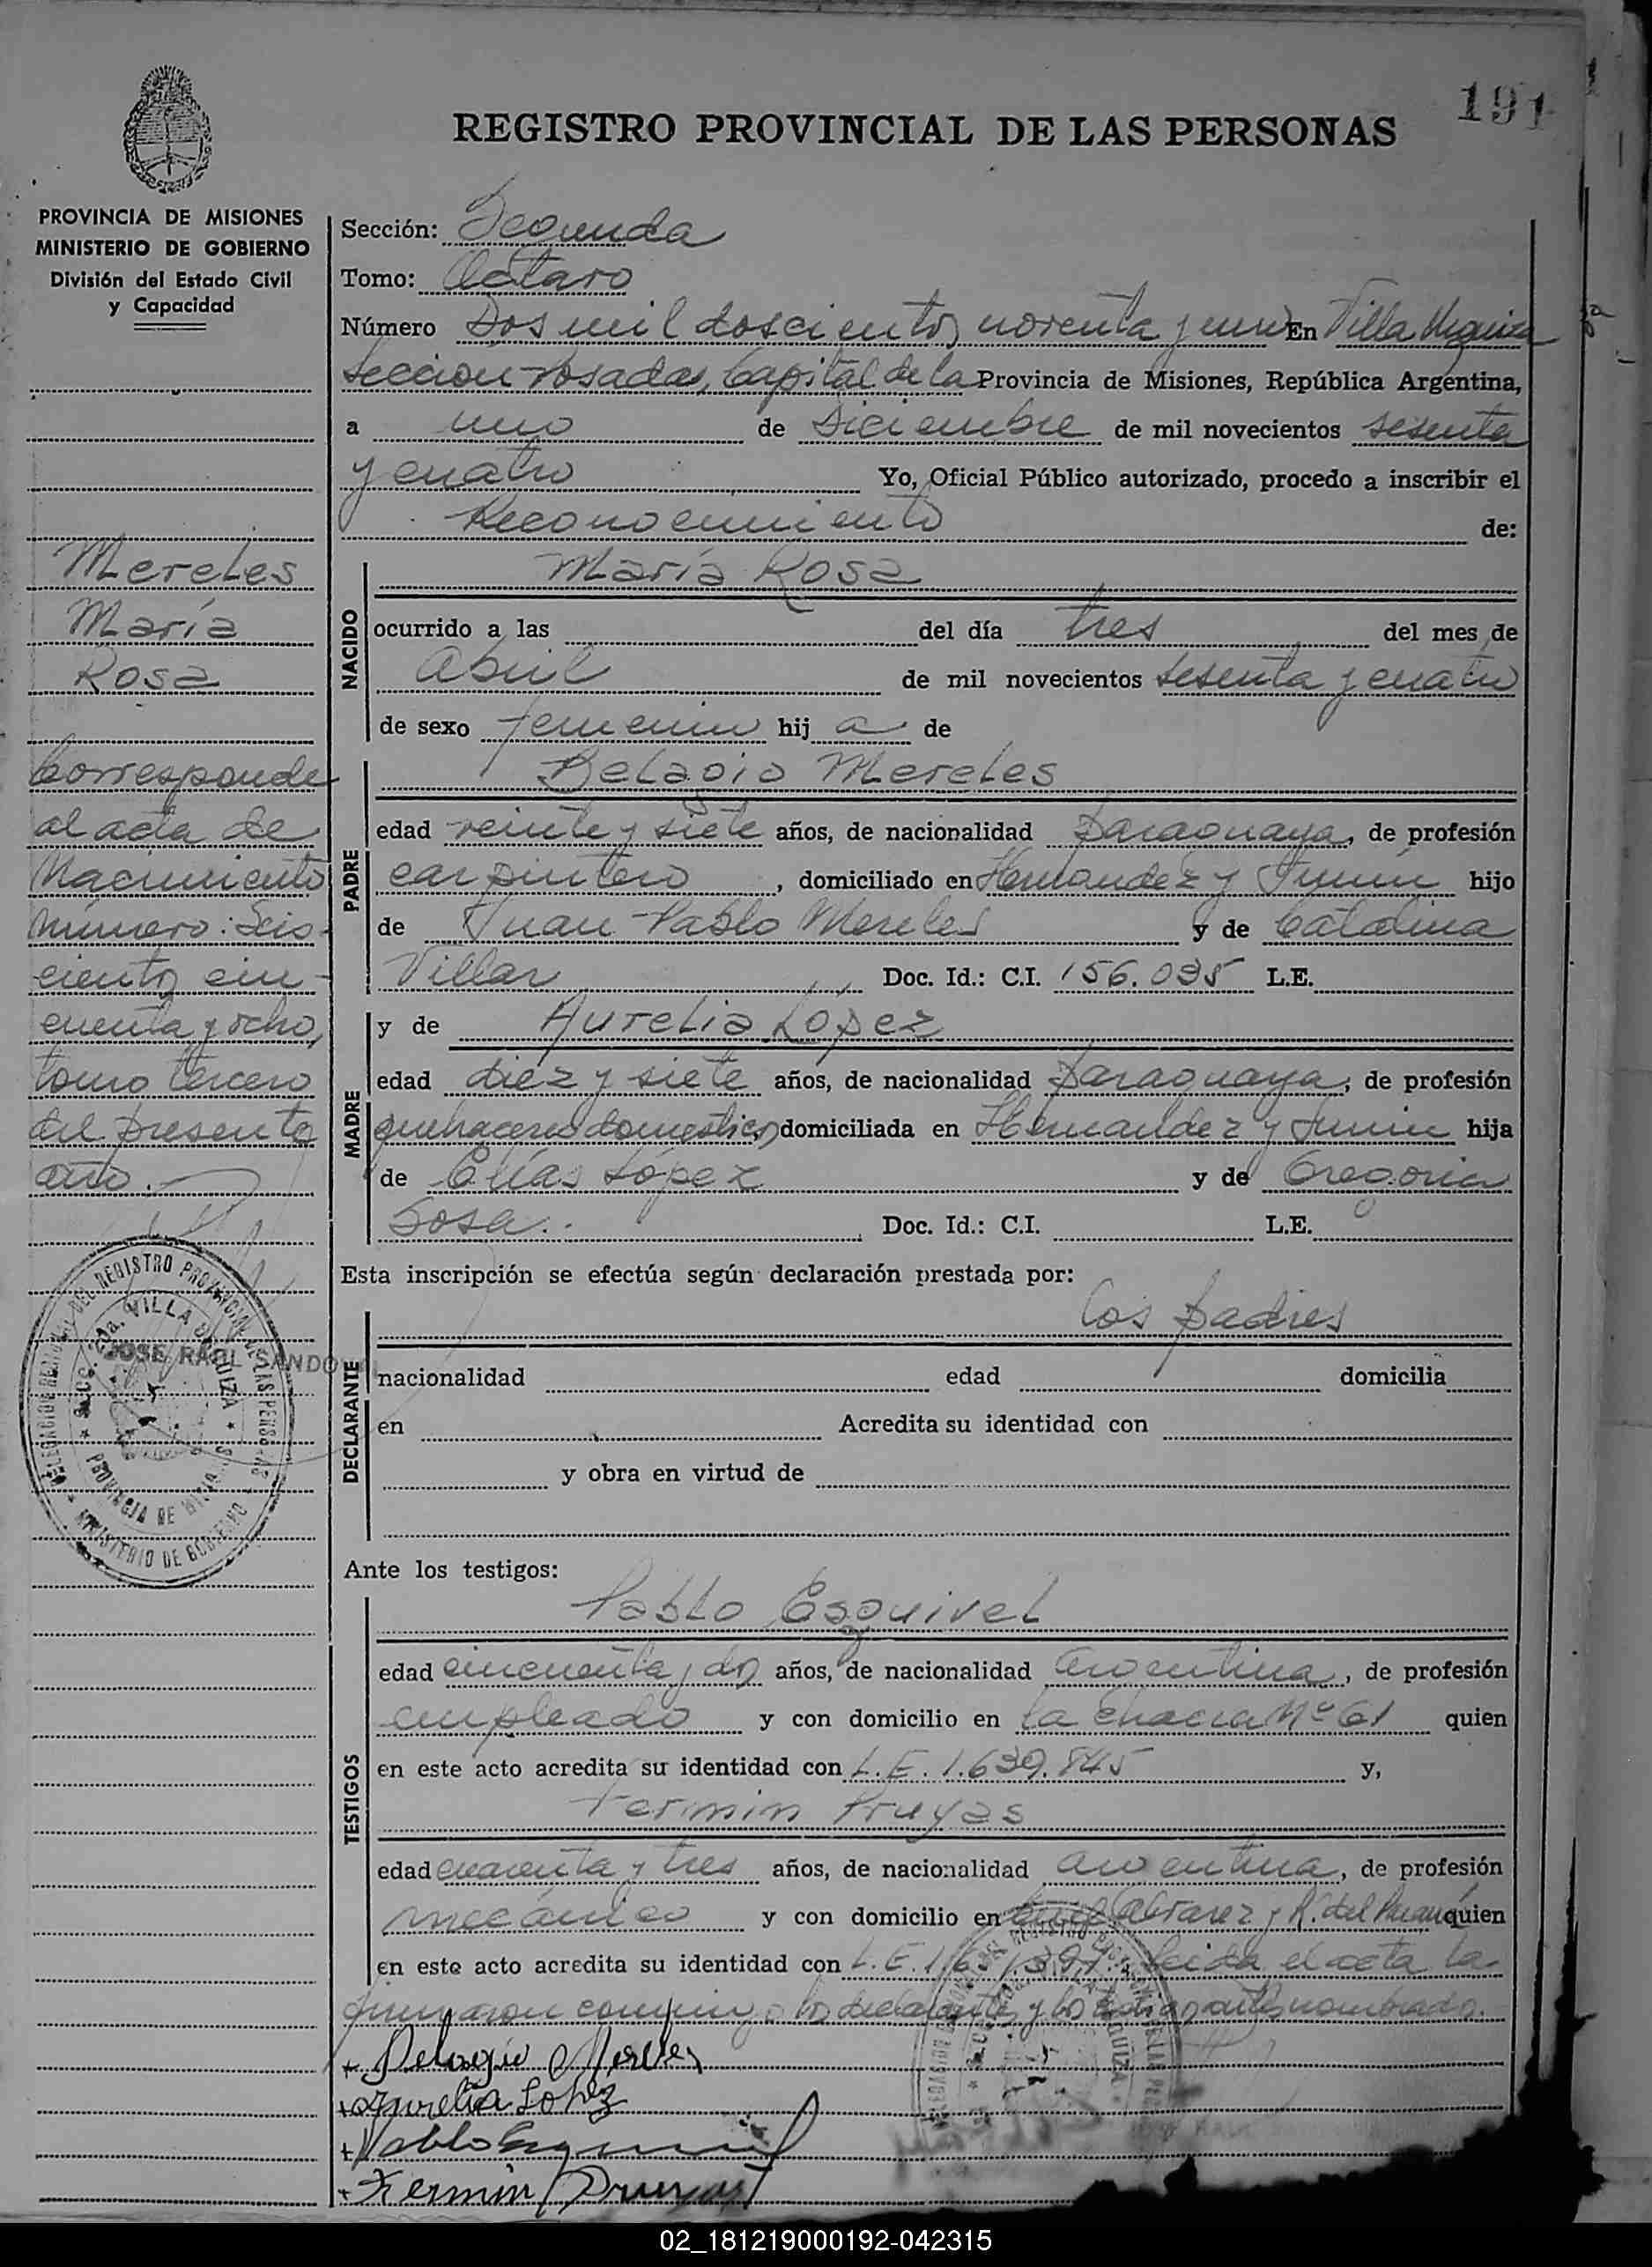 191
REGISTRO PROVINCIAL DE LAS PERSONAS
PROVINCIA DE MISIONES
MINISTERIO DE GOBIERNO
División del Estado Civil
y Capacidad
Mereles
María
Rosa
Corresponde
al acta de
Nacimiento
número: Seis-
cientos cin-
cuenta y ocho,
tomo tercero
del presente
año.
DELEGACION DEL REGISTRO PROVINCIAL DE LAS PERSONAS
Secc. 2da. VILLA URQUIZA
PROVINCIA DE MISIONES
MINISTERIO DE GOBIERNO
JOSE RAUL SANDO
Sección: Segunda
Tomo: Octavo
Número Dos mil doscientos noventa y uno En Villa Urquiza
Sección Posadas, Capital de la Provincia de Misiones, República Argentina,
a uno de Diciembre de mil novecientos sesenta
y cuatro Yo, Oficial Público autorizado, procedo a inscribir el
Reconocimiento de:
NACIDO
María Rosa
ocurrido a las del día tres del mes de
Abril de mil novecientos sesenta y cuatro
de sexo femenino hij a de
PADRE
Pelagio Mereles
edad veinte y siete años, de nacionalidad paraguaya, de profesión
carpintero, domiciliado en Hernandez y Junín hijo
de Juan Pablo Mereles y de Catalina
Villar Doc. Id.: C.I. 156.035 L.E.
MADRE
y de Aurelia López
edad diez y siete años, de nacionalidad paraguaya, de profesión
quehaceres domesticos domiciliada en Hernandez y Junin hija
de Elías López y de Gregoria
Sosa.. Doc. Id.: C.I. L.E.
Esta inscripción se efectúa según declaración prestada por:
DECLARANTE
los padres
nacionalidad edad domicilia
en Acredita su identidad con
y obra en virtud de
Ante los testigos:
TESTIGOS
Pablo Esquivel
edad cincuenta y dos años, de nacionalidad argentina, de profesión
empleado y con domicilio en la chacra Nº 61 quien
en este acto acredita su identidad con L.E. 1.639.845 y,
Fermin Pruyas
edad cuarenta y tres años, de nacionalidad argentina, de profesión
mecánico y con domicilio en Alvarez y R. del quien
en este acto acredita su identidad con L.E. Leida el acta la
firmaron conmigo los declarantes y los testigos antes nombrados.
+ Pelagio Mereles
+ Aurelia Lopez
+ Pablo Esquivel
+ Fermin Pruyas
02_181219000192-042315